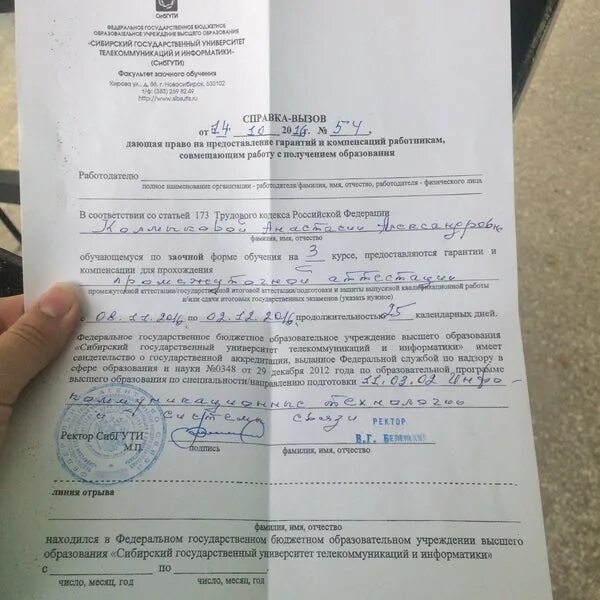 СибГУТИ
ФЕДЕРАЛЬНОЕ ГОСУДАРСТВЕННОЕ БЮДЖЕТНОЕ
ОБРАЗОВАТЕЛЬНОЕ УЧРЕЖДЕНИЕ ВЫСШЕГО ОБРАЗОВАНИЯ
«СИБИРСКИЙ ГОСУДАРСТВЕННЫЙ УНИВЕРСИТЕТ
ТЕЛЕКОММУНИКАЦИЙ И ИНФОРМАТИКИ»
(СибГУТИ)
Факультет заочного обучения
Кирова ул., д. 86, г. Новосибирск, 630102
т/ф: (383) 269 82 49
http://www.sibsutis.ru
СПРАВКА-ВЫЗОВ
от 14 10 2016г. № 54,
дающая право на предоставление гарантий и компенсаций работникам,
совмещающим работу с получением образования
Работодателю
полное наименование организации - работодателя/фамилия, имя, отчество, работодателя - физического лица
В соответствии со статьей 173 Трудового кодекса Российской Федерации
Колмыковой Анастасии Александровне
фамилия, имя, отчество
обучающемуся по заочной форме обучения на 3 курсе, предоставляются гарантии и
компенсации для прохождения
промежуточной аттестации
промежуточной аттестации/государственной итоговой аттестации/подготовки и защиты выпускной квалификационной работы
и/или сдачи итоговых государственных экзаменов (указать нужное)
с 08.11.2016 по 02.12.2016 продолжительностью 25 календарных дней.
Федеральное государственное бюджетное образовательное учреждение высшего образования
«Сибирский государственный университет телекоммуникаций и информатики» имеет
свидетельство о государственной аккредитации, выданное Федеральной службой по надзору в
сфере образования и науки №0348 от 29 декабря 2012 года по образовательной программе
высшего образования по специальности/направлению подготовки 11.02.02 Инфо-
коммуникационные технологии
и системы связи
Ректор СибГУТИ
РЕКТОР
В.Г. БЕЛЕНЬКИЙ
М.П.
подпись
фамилия, имя, отчество
линия отрыва
фамилия, имя, отчество
находился в Федеральном государственном бюджетном образовательном учреждении высшего
образования «Сибирский государственный университет телекоммуникаций и информатики»
с по
число, месяц, год число, месяц, год